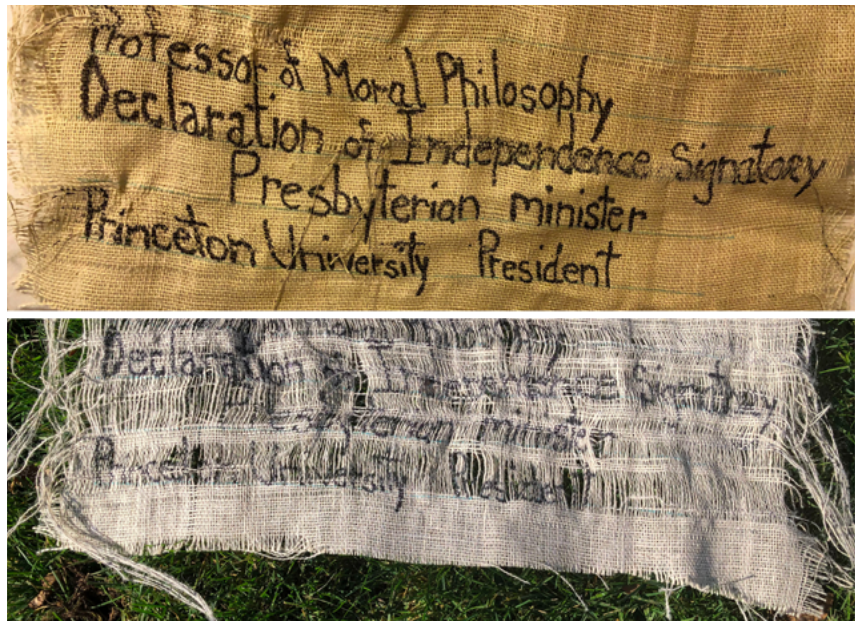 Professor of Moral Philosophy
Declaration of Independence Signatory
Presbyterian minister
Princeton University President
Declaration of Independence Signatory
Presbyterian minister
Princeton University President